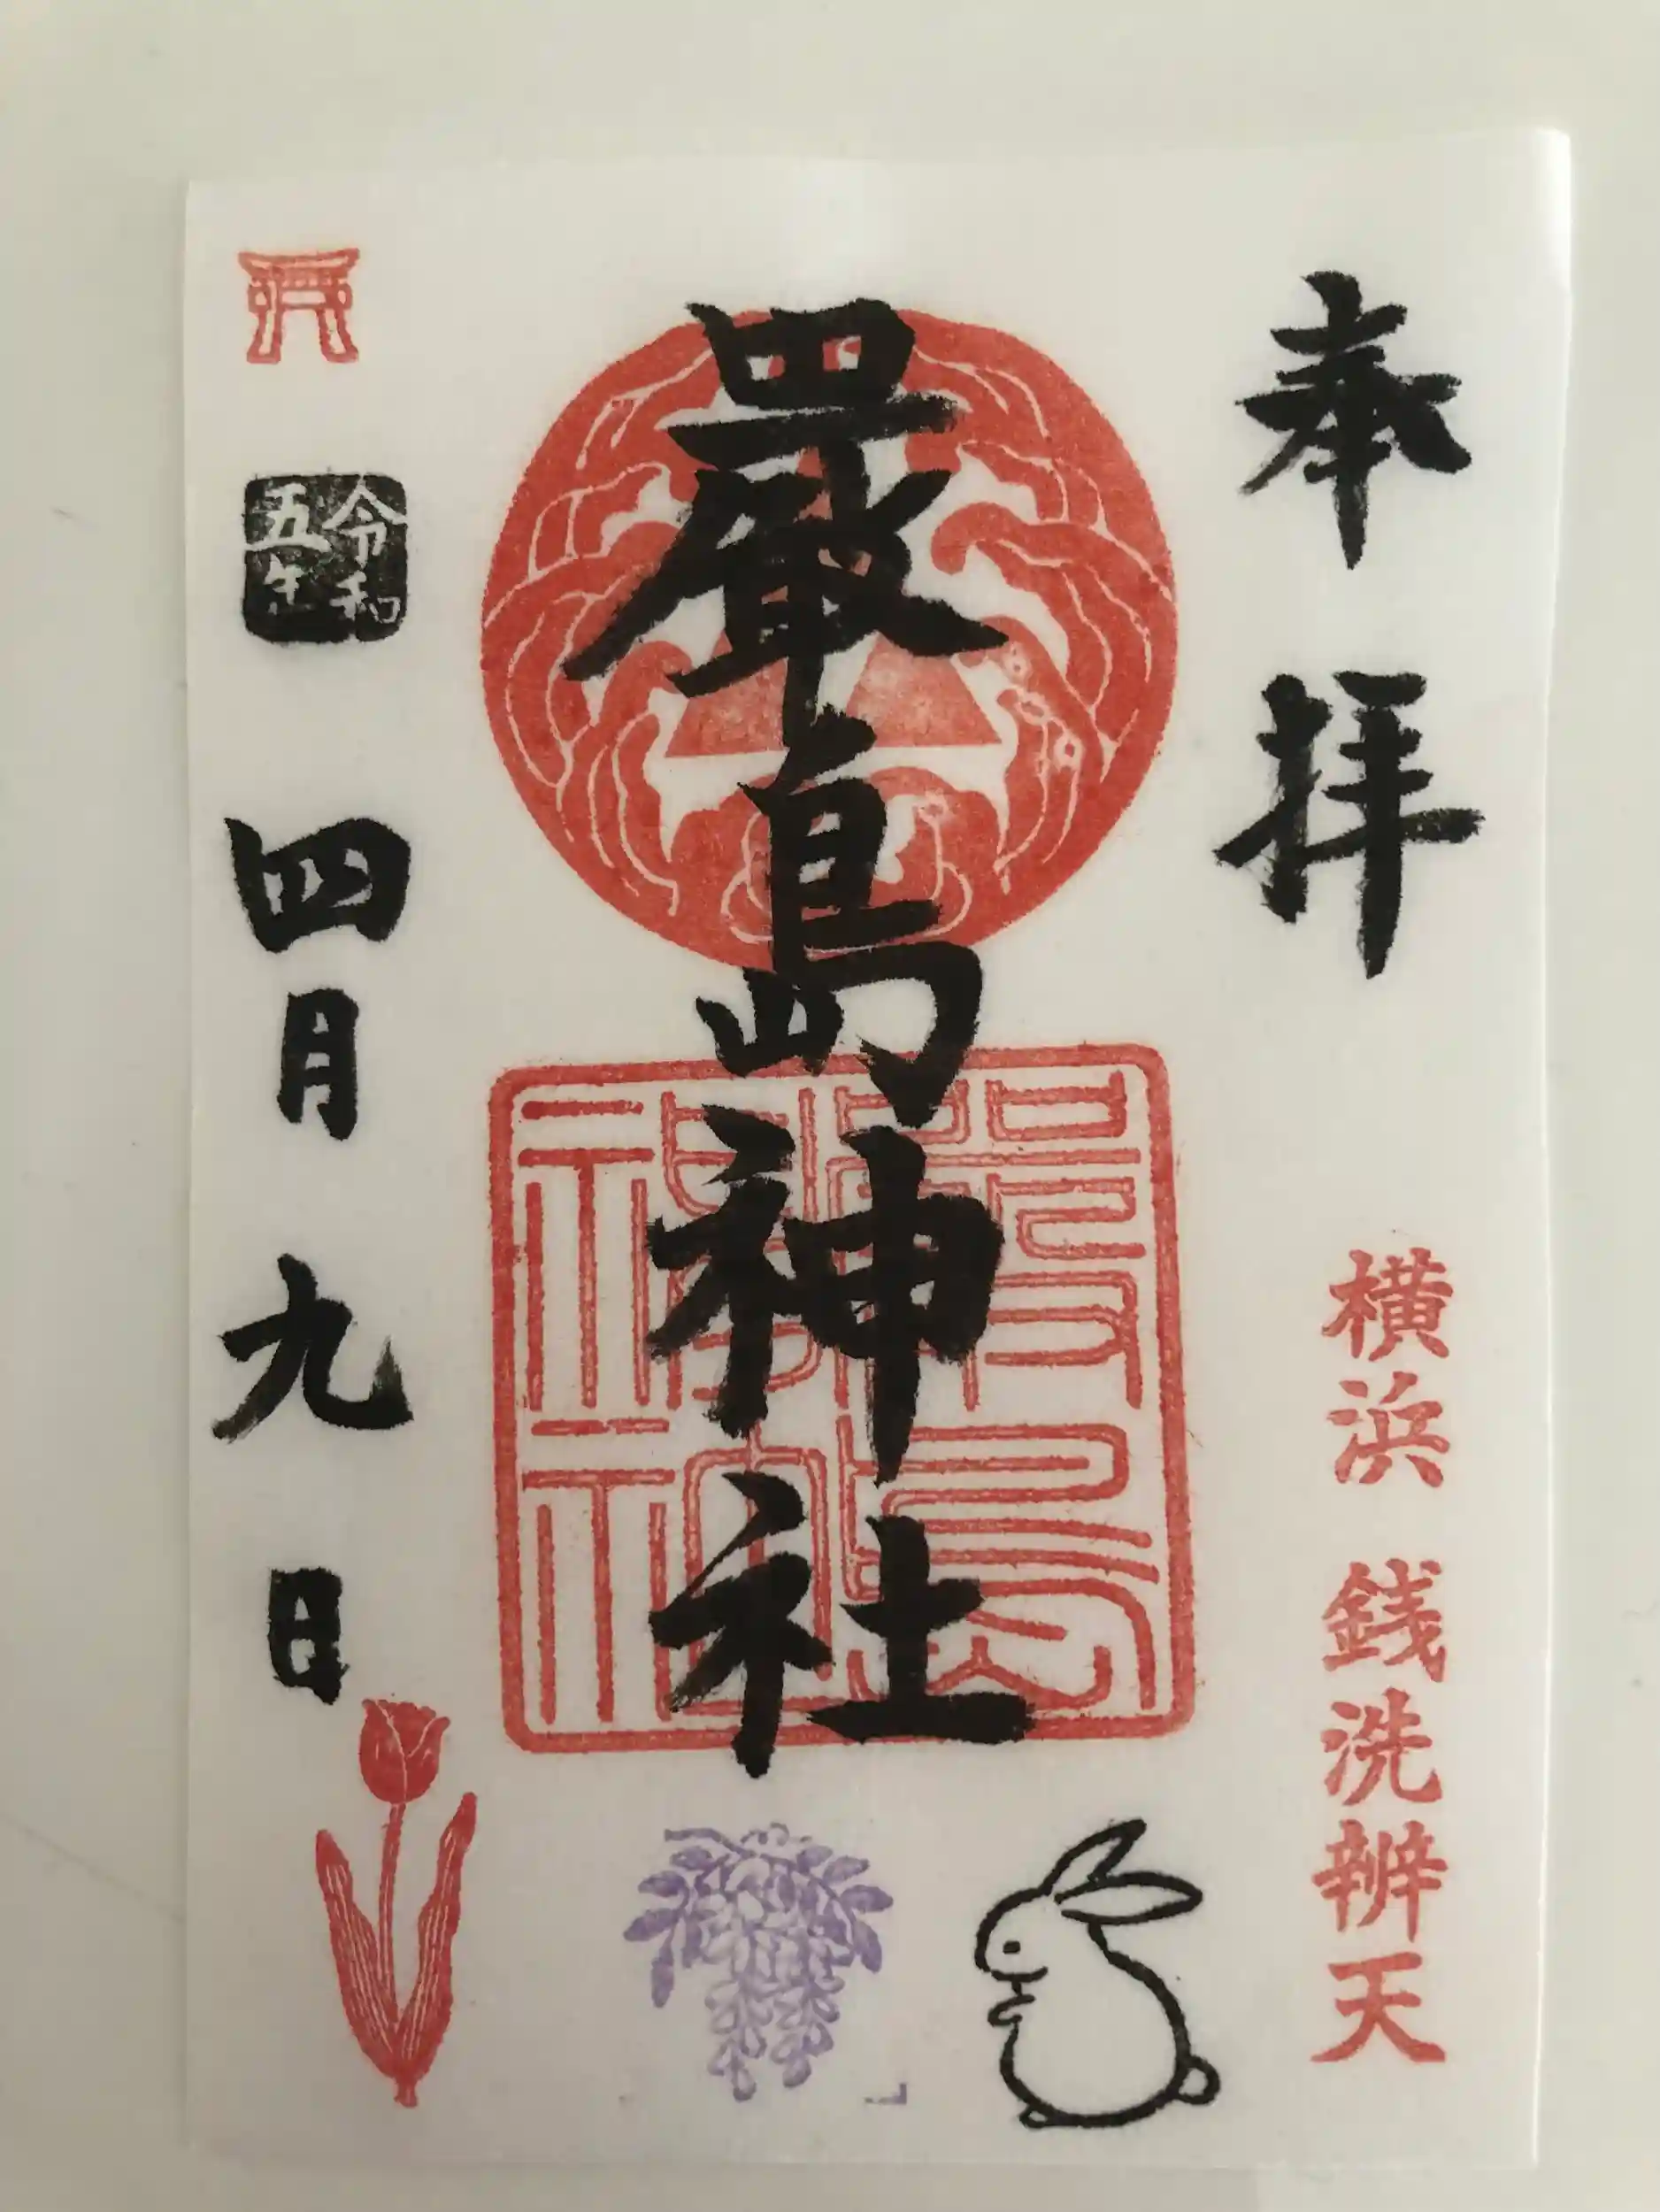 奉拝
横浜 銭洗辨天
厳島神社
厳島神社
令和五年
四月九日